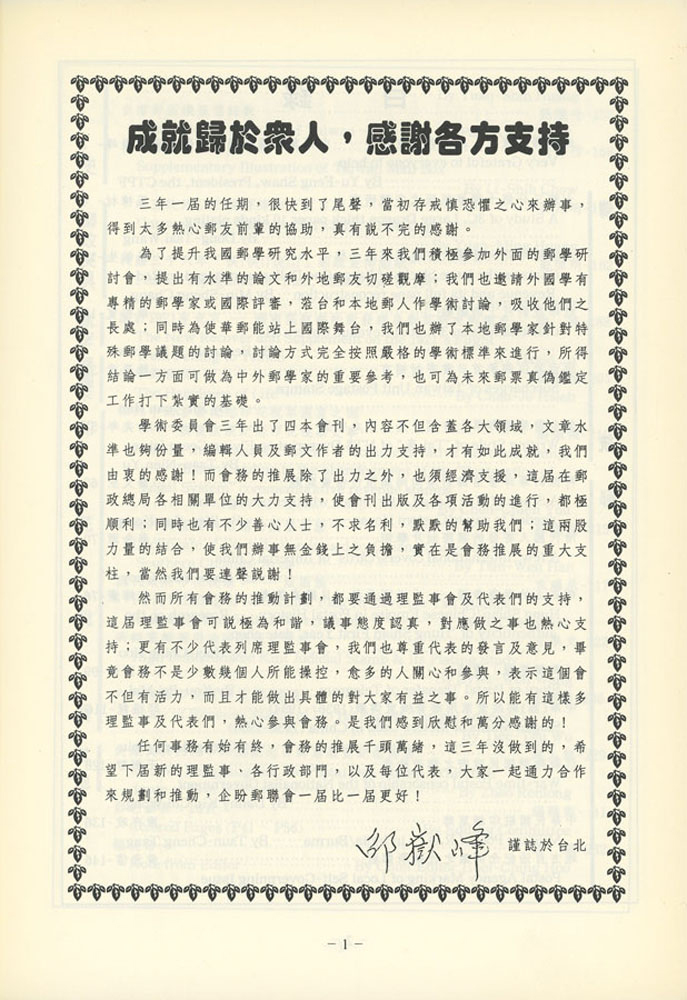 成就歸於衆人，感謝各方支持
三年一屆的任期，很快到了尾聲，當初存戒慎恐懼之心來辦事，
得到太多熱心郵友前輩的協助，真有說不完的感謝。
為了提升我國郵學研究水平，三年來我們積極參加外面的郵學研
討會，提出有水準的論文和外地郵友切磋觀摩；我們也邀請外國學有
專精的郵學家或國際評審，蒞台和本地郵人作學術討論，吸收他們之
長處；同時為使華郵能站上國際舞台，我們也辦了本地郵學家針對特
殊郵學議題的討論，討論方式完全按照嚴格的學術標準來進行，所得
結論一方面可做為中外郵學家的重要參考，也可為未來郵票真偽鑑定
工作打下紮實的基礎。
學術委員會三年出了四本會刊，內容不但含蓋各大領域，文章水
準也夠份量，編輯人員及郵文作者的出力支持，才有如此成就，我們
由衷的感謝！而會務的推展除了出力之外，也須經濟支援，這屆在郵
政總局各相關單位的大力支持，使會刊出版及各項活動的進行，都極
順利；同時也有不少善心人士，不求名利，默默的幫助我們；這兩股
力量的結合，使我們辦事無金錢上之負擔，實在是會務推展的重大支
柱，當然我們要連聲說謝！
然而所有會務的推動計劃，都要通過理監事會及代表們的支持，
這屆理監事會可說極為和諧，議事態度認真，對應做之事也熱心支
持；更有不少代表列席理監事會，我們也尊重代表的發言及意見，畢
竟會務不是少數幾個人所能操控，愈多的人關心和參與，表示這個會
不但有活力，而且才能做出具體的對大家有益之事。所以能有這樣多
理監事及代表們，熱心參與會務。是我們感到欣慰和萬分感謝的！
任何事務有始有終，會務的推展千頭萬緒，這三年沒做到的，希
望下屆新的理監事、各行政部門，以及每位代表，大家一起通力合作
來規劃和推動，企盼郵聯會一屆比一屆更好！
邱嶽峰 謹誌於台北
－1－